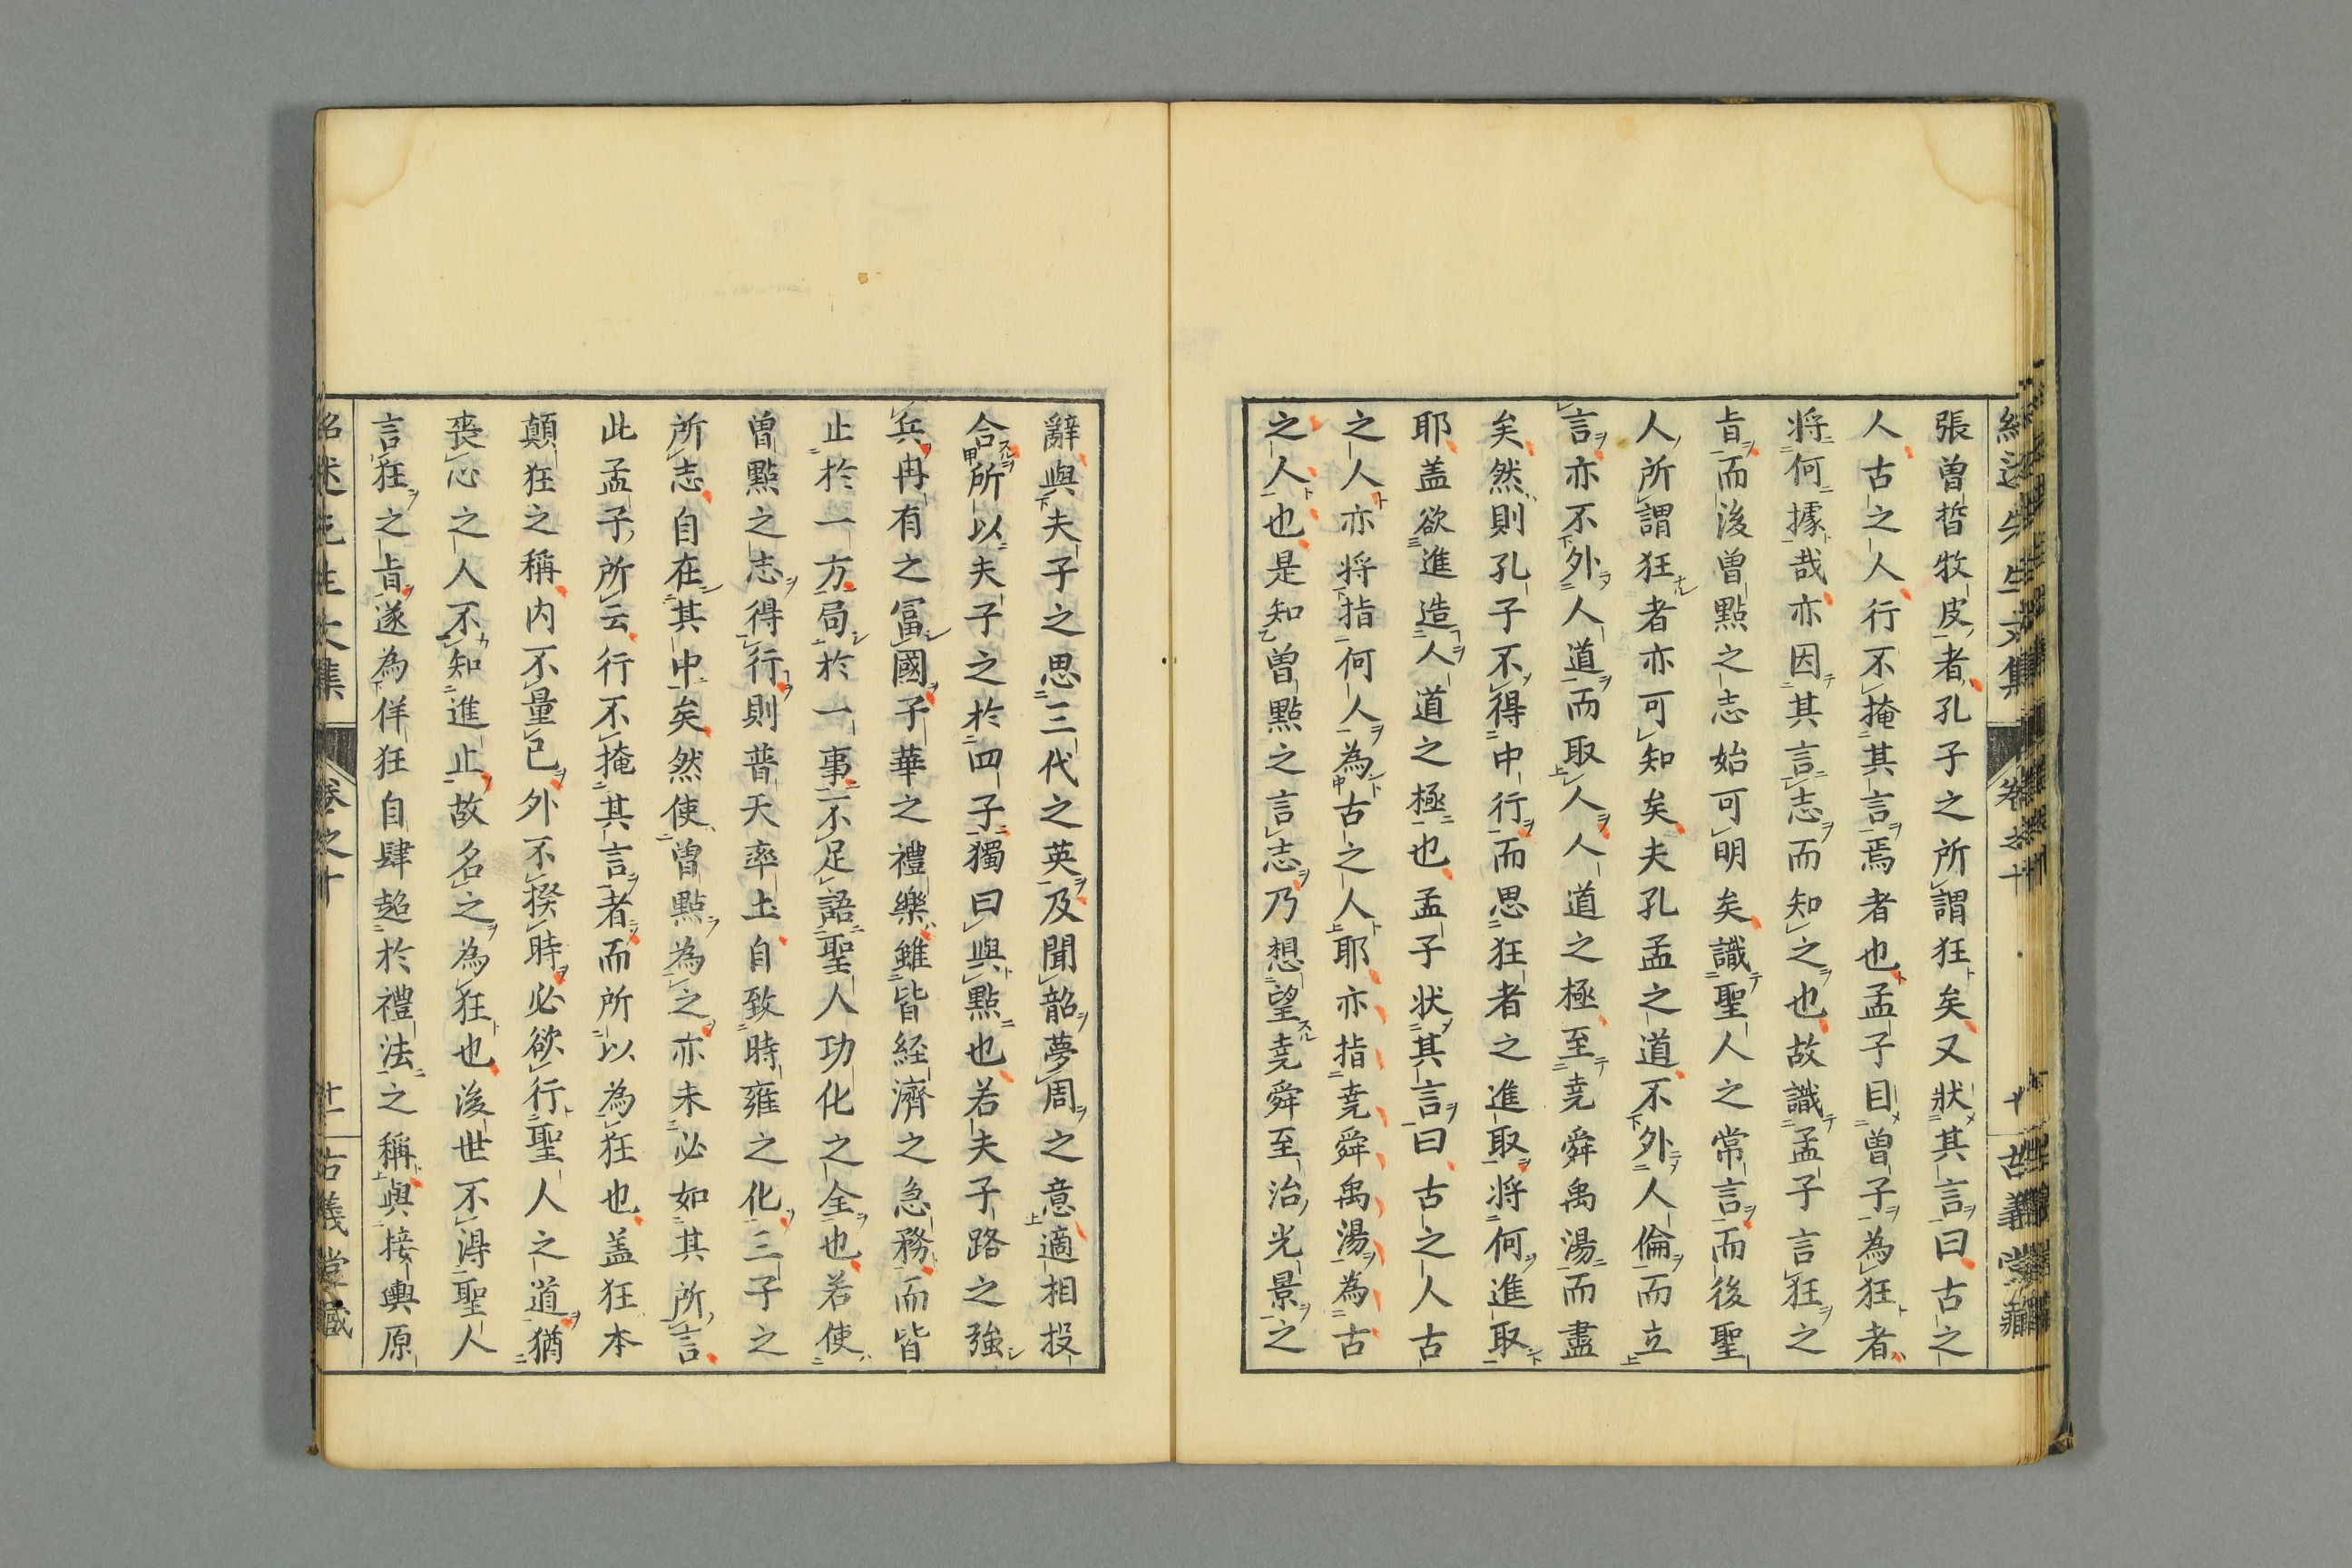 紹述先生文集 卷之十 十 古義堂藏
張曽晳牧皮者孔子之所謂狂矣又狀其言曰古之
人古之人行不掩其言焉者也孟子目曽子為狂者
將何據哉亦因其言志而知之也故識孟子言狂之
旨而後曽點之志始可明矣識聖人之常言而後聖
人所謂狂者亦可知矣夫孔孟之道不外人倫而立
言亦不外人道而取人人道之極至尭舜禹湯而盡
矣然則孔子不得中行而思狂者之進取將何進取
耶盖欲進造人道之極也孟子状其言曰古之人古
之人亦將指何人為古之人耶亦指尭舜禹湯為古
之人也是知曽點之言志乃想望尭舜至治光景之
辭與夫子之思三代之英及聞韶夢周之意適相投
合所以夫子之於四子獨曰與點也若夫子路之強
兵冉有之冨國子華之禮樂雖皆経濟之急務而皆
止於一方局於一事不足語聖人功化之全也若使
曽點之志得行則普天率土自致時雍之化三子之
所志自在其中矣然使曽點為之亦未必如其所言
此孟子所云行不掩其言者而所以為狂也盖狂本
顛狂之稱内不量已外不揆時必欲行聖人之道猶
喪心之人不知進止故名之為狂也後世不得聖人
言狂之旨遂為佯狂自肆超於禮法之稱與接輿原
紹述先生文集 卷之十 十一 古義堂藏